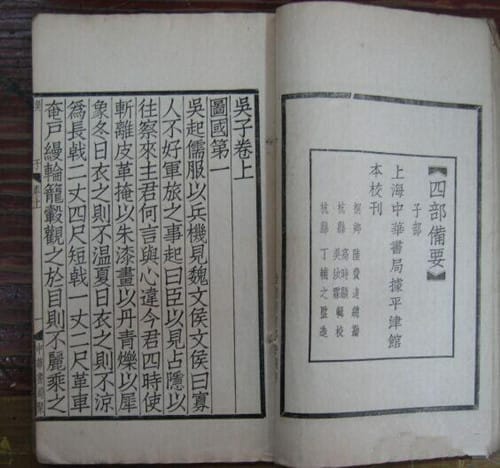 四部備要
子部
上海中華書局據平津館
本校刊
桐鄉 陸費逵總勘
杭縣 高時顯 吳汝霖 輯校
杭縣 丁輔之監造
吳子卷上
圖國第一
吳起儒服以兵機見魏文侯文侯曰寡
人不好軍旅之事起曰臣以見占隱以
往察來主君何言與心違今君四時使
斬離皮革掩以朱漆畫以丹青爍以犀
象冬日衣之則不溫夏日衣之則不涼
爲長戟二丈四尺短戟一丈二尺革車
奄戸縵輪籠轂觀之於目則不麗乘之
子 卷上 一 中華書局聚